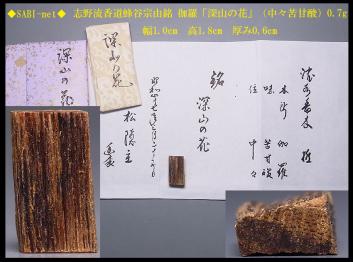 ◆SABI-net◆ 志野流香道蜂谷宗由銘 伽羅「深山の花」(中々苦甘酸)0.7g
幅1.0cm 高1.8cm 厚み0.6cm
深山の花
深山の花
木所 伽羅
味 苦甘酸
位 中々
銘
深山の花
松隠主